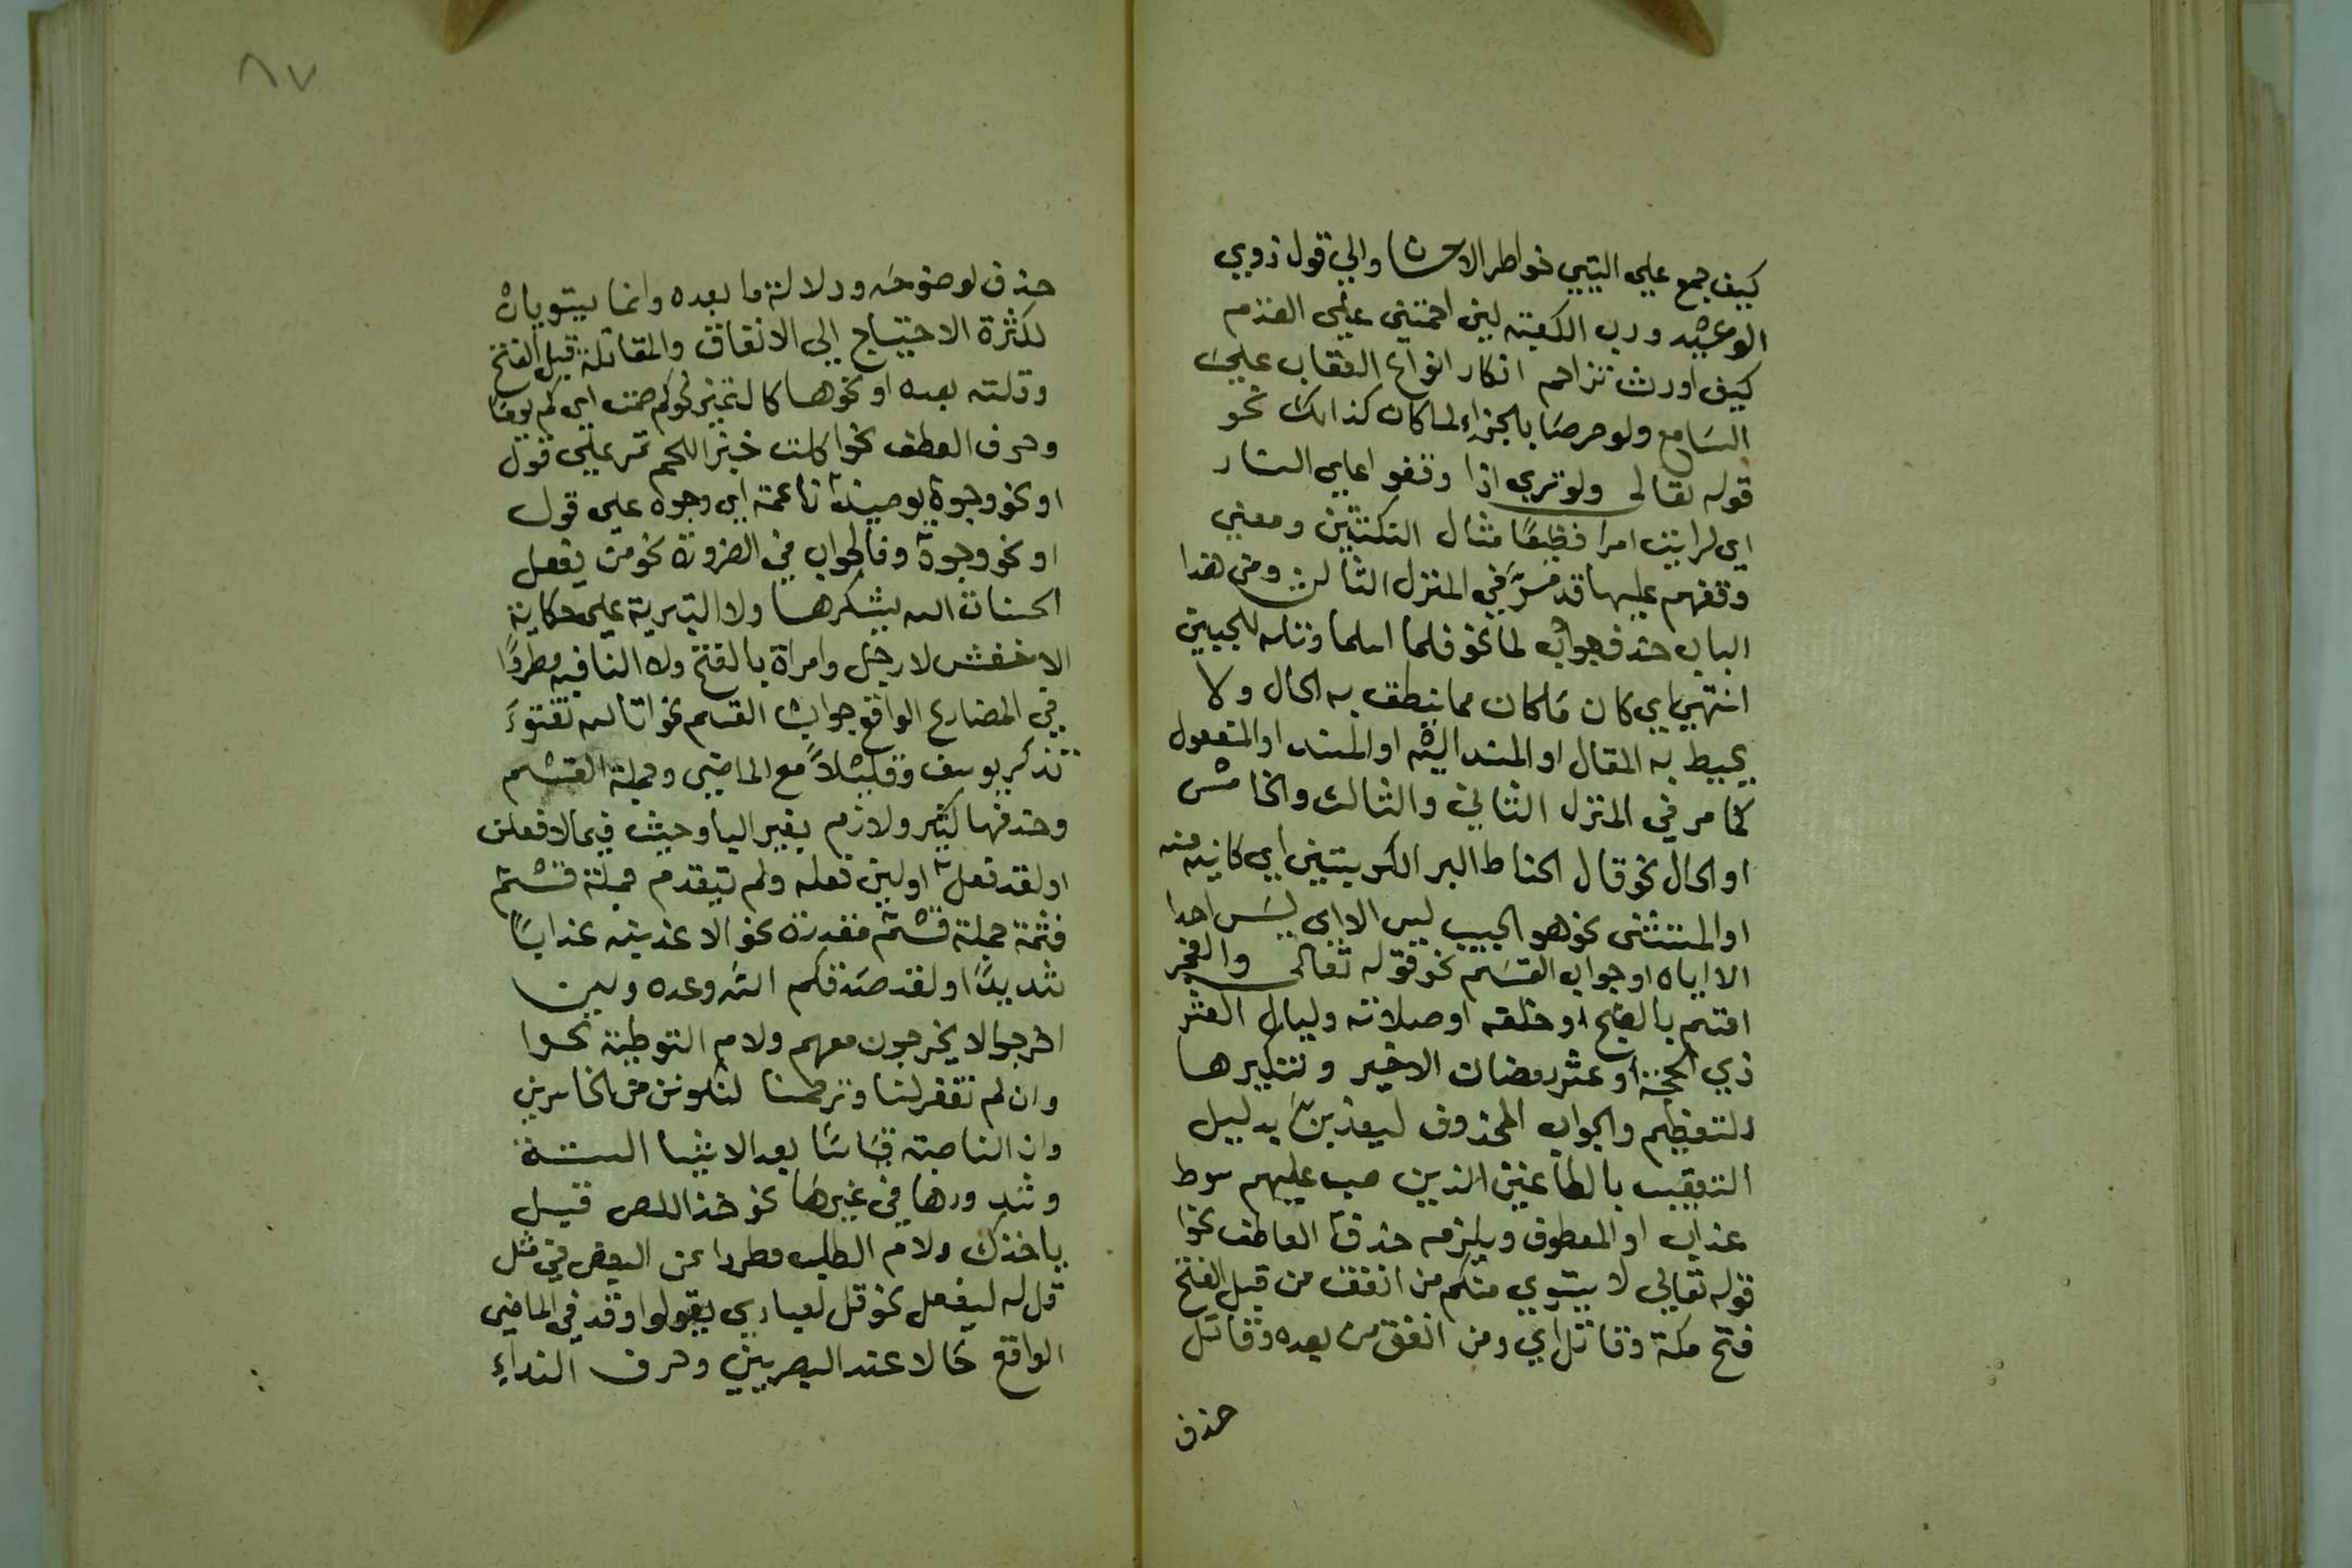 كيف جمع علي البتيي خواطر الاحسان والي قول ذوي
الوعيد ورب الكعبة لين اقمتني علي القدم
كيف اورث تزاحم انكار انواع العقاب علي
السامع ولو حرصا بالجزاء لما كان كذالك نحو
قوله تعالى ولو تري اذا وقفوا علي النار
اي لرايت امرا فظيعًا مثال التكثير ومعني
وقفهم عليها قد مر في المنزل الثالث ومن هذا
الباب حذف جواب لما نحو فلما اسلما وتله للجبين
انتهي اي كان ما كان مما ينطق به الحال ولا
يحيط به المقال او المسند اليه او المسند او المفعول
كما مر في المنزل الثاني والثالث والخامس
او الحال نحو قال الحناط البر الكر بستين اي كاينه منه
او المستثنى نحو هو الحبيب ليس الا اي ليس احدا
الا اياه او جواب القسم نحو قوله تعالى والفجر
اقسم بالصبح او خلقه او صلاته وليال العشر
ذي الحجة او عشر رمضان الاخير وتنكيرها
للتعظيم والجواب المحذوف ليعذبن بدليل
التعقيب بالطاغين الذين صب عليهم سوط
عذاب او المعطوف ويلزمه حذف العاطف نحوا
قوله تعالي لا يستوي منكم من انفق من قبل الفتح
فتح مكة وقاتل اي ومن انفق من بعده وقاتل
حذف
٨٧
حذف لوضوحه ودلالة ما بعده وانما يستويان
لكثرة الاحتياج الى الانفاق والمقاتلة قبل الفتح
وقلته بعده او نحوها كالتمييز نحو كم صمت اي كم يوما
وحرف العطف نحو اكلت خبزا لحم تمر علي قول
او نحو وجوه يوميذ ناعمة اي وجوه علي قول
او نحو وجوه وفا الجواب في الضرورة نحو من يفعل
الحسنات الله يشكرها ولا التبرية علي حكاية
الاخفش لا رجل وامراة بالفتح ولا النافيه مطردًا
في المضارع الواقع جواب القسم نحو تالله تفتؤ
تذكر يوسف وقليلاً مع الماضي وجملة القسم
وحذفها كثير ولازم بغير البا وحيث قيل لافعلن
او لقد فعل او لين فعله ولم يتقدم جملة قسم
فثمة جملة قسم مقدرة نحو لاعذبنه عذابًا
شديدًا او لقد صدقكم الله وعده ولين
اخرجوا لا يخرجون معهم ولام التوطئة نحو
وان لم تغفر لنا وترحمنا لنكونن من الخاسرين
وان الناصبة قياسًا بعد الاشيا الستة
وشذ ورها في غيرها نحو خذ اللص قبل
ياخذك ولام الطلب مطردا عن البعض في مثل
قل له ليفعل نحو قل لعبادي يقولوا وقد في الماضي
الواقع حالا عند البصريين وحرف النداء